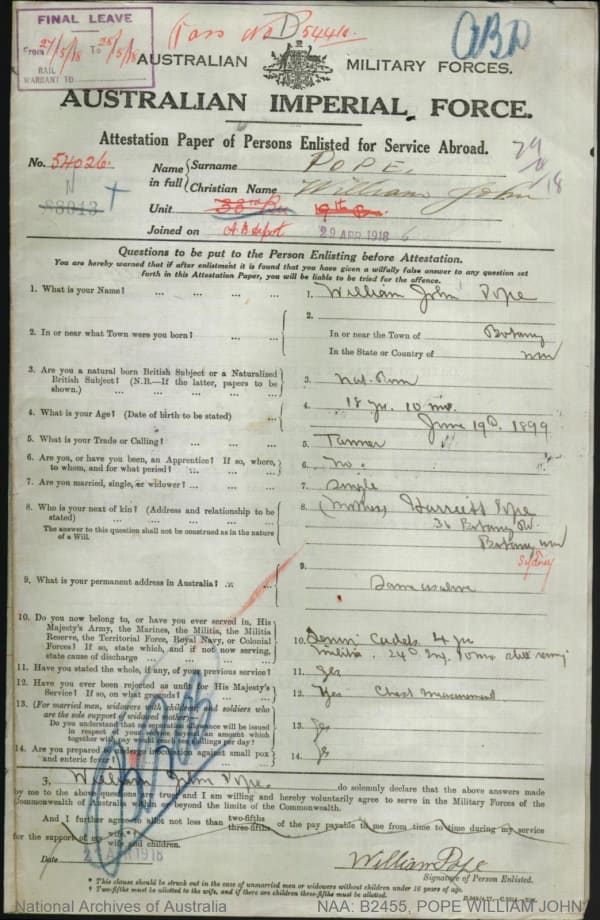 FINAL LEAVE
From 27/5/18 To 28/5/18
RAIL
WARRANT TO
Pass No D 5441
AUSTRALIAN MILITARY FORCES.
AUSTRALIAN IMPERIAL FORCE.
Attestation Paper of Persons Enlisted for Service Abroad.
No. 54026.
N
Name in full
Surname POPE.
Christian Name William John
Unit
Joined on A.D. Depot 29 APR 1918
Questions to be put to the Person Enlisting before Attestation.
You are hereby warned that if after enlistment it is found that you have given a wilfully false answer to any question set
forth in this Attestation Paper, you will be liable to be tried for the offence.
1. What is your Name? ... ... ... ... 1. William John Pope
2. In or near what Town were you born? ... ... 2. In or near the Town of Botany
In the State or Country of NSW
3. Are you a natural born British Subject or a Naturalized
British Subject? (N.B.—If the latter, papers to be
shown.) ... ... ... ... 3. Nat. Born
4. What is your Age? (Date of birth to be stated) ... 4. 18 yr. 10 mo.
June 19th. 1899
5. What is your Trade or Calling? ... ... ... 5. Tanner
6. Are you, or have you been, an Apprentice? If so, where,
to whom, and for what period? ... ... ... 6. No.
7. Are you married, single, or widower? ... ... ... 7. Single
8. Who is your next of kin? (Address and relationship to be
stated) ... ... ... ... 8. (Mother) Harriett Pope
The answer to this question shall not be construed as in the nature
of a Will.
36 Botany Rd.
Botany NSW
Sydney
9. What is your permanent address in Australia? ... ... 9. Same as above
10. Do you now belong to, or have you ever served in, His
Majesty's Army, the Marines, the Militia, the Militia
Reserve, the Territorial Force, Royal Navy, or Colonial
Forces? If so, state which, and if not now serving,
state cause of discharge ... ... ... 10. Senior Cadets 4 yr
Militia.
11. Have you stated the whole, if any, of your previous service? 11. Yes
12. Have you ever been rejected as unfit for His Majesty's
Service? If so, on what grounds? 12. Yes Chest Measurement
13. (For married men, widowers with children, and soldiers who
are the sole support of widowed mother)—
Do you understand that no separation allowance will be issued
in respect of your service beyond an amount which
together with pay would reach ten shillings per day? 13. Yes
14. Are you prepared to undergo inoculation against small pox
and enteric fever? 14. Yes
I, William John Pope do solemnly declare that the above answers made
by me to the above questions are true, and I am willing and hereby voluntarily agree to serve in the Military Forces of the
Commonwealth of Australia within or beyond the limits of the Commonwealth.
And I further agree to allot not less than two-fifths three-fifths of the pay payable to me from time to time during my service
for the support of my wife.* † wife and children.
Date APR 1918
William Pope
Signature of Person Enlisted.
* This clause should be struck out in the case of unmarried men or widowers without children under 16 years of age.
† Two-fifths must be allotted to the wife, and if there are children three-fifths must be allotted.
National Archives of Australia NAA: B2455, POPE WILLIAM JOHN